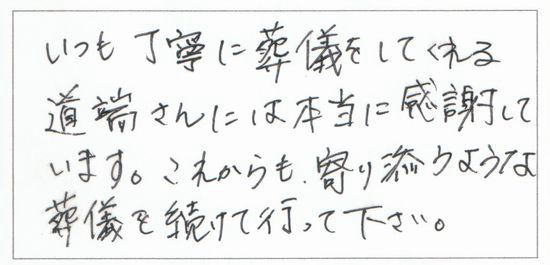 いつも丁寧に葬儀をしてくれる
道端さんには本当に感謝して
います。これからも、寄り添うような
葬儀を続けて行って下さい。